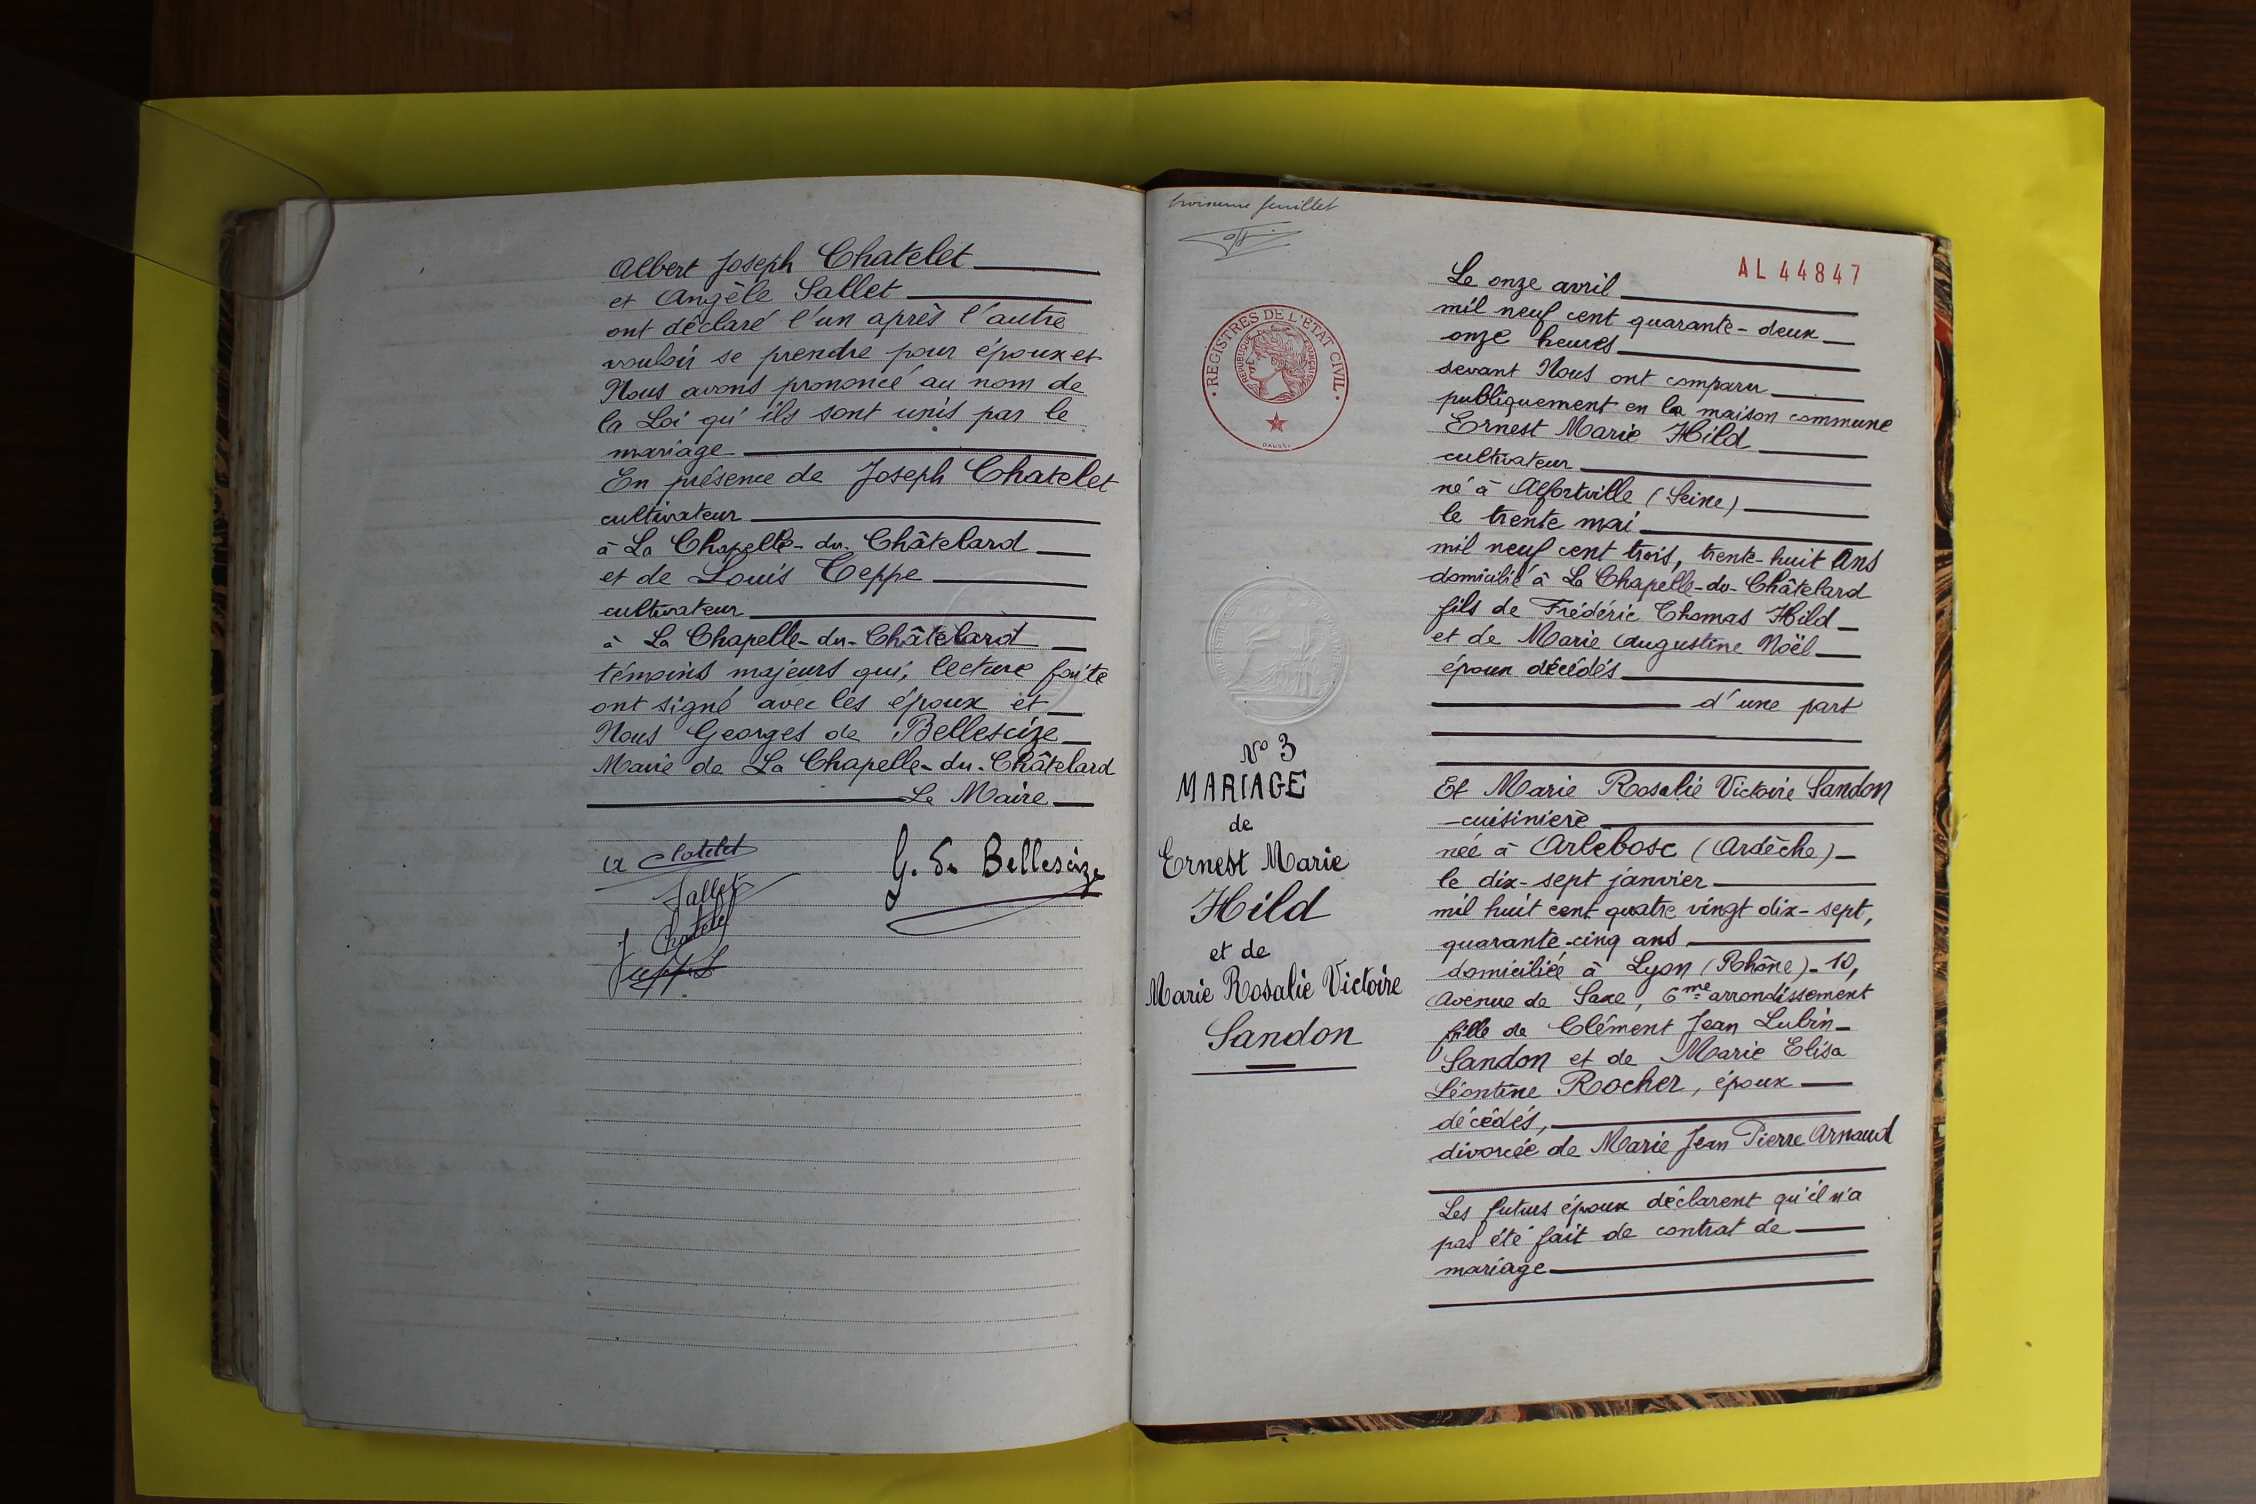 Albert Joseph Chatelet
et Angèle Sallet
ont déclaré l'un après l'autre
vouloir se prendre pour époux et
Nous avons prononcé au nom de
la Loi qu'ils sont unis par le
mariage
En présence de Joseph Chatelet
cultivateur
à La Chapelle-du-Châtelard
et de Louis Teppe
cultivateur
à La Chapelle-du-Châtelard
témoins majeurs qui, lecture faite
ont signé avec les époux et
Nous Georges de Bellescize
Maire de La Chapelle-du-Châtelard
Le Maire
a Chatelet
G. de Bellescize
Sallet
J Chatelet
troisieme feuillet
REGISTRES DE L'ÉTAT CIVIL
RÉPUBLIQUE FRANÇAISE
N° 3
MARIAGE
de
Ernest Marie
Hild
et de
Marie Rosalie Victoire
Sandon
AL 44847
Le onze avril
mil neuf cent quarante-deux
onze heures
devant Nous ont comparu
publiquement en la maison commune
Ernest Marie Hild
cultivateur
né à Alfortville (Seine)
le trente mai
mil neuf cent trois, trente-huit ans
domicilié à La Chapelle-du-Châtelard
fils de Frédéric Thomas Hild
et de Marie Augustine Noël
époux décédés
d'une part
Et Marie Rosalie Victoire Sandon
cuisinière
née à Arlebosc (Ardèche)
le dix-sept janvier
mil huit cent quatre vingt dix-sept,
quarante-cinq ans
domiciliée à Lyon (Rhône)-10,
Avenue de Saxe, 6me arrondissement
fille de Clément Jean Lubin
Sandon et de Marie Elisa
Léontine Rocher, époux
décédés,
divorcée de Marie Jean Pierre Arnaud
Les futurs époux déclarent qu'il n'a
pas été fait de contrat de
mariage